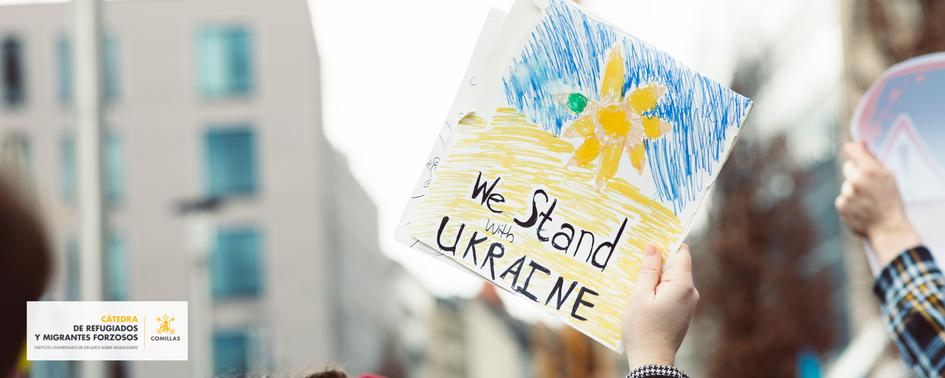 We Stand
with
UKRAINE
CÁTEDRA
DE REFUGIADOS
Y MIGRANTES FORZOSOS
INSTITUTO UNIVERSITARIO DE ESTUDIOS SOBRE MIGRACIONES
COMILLAS